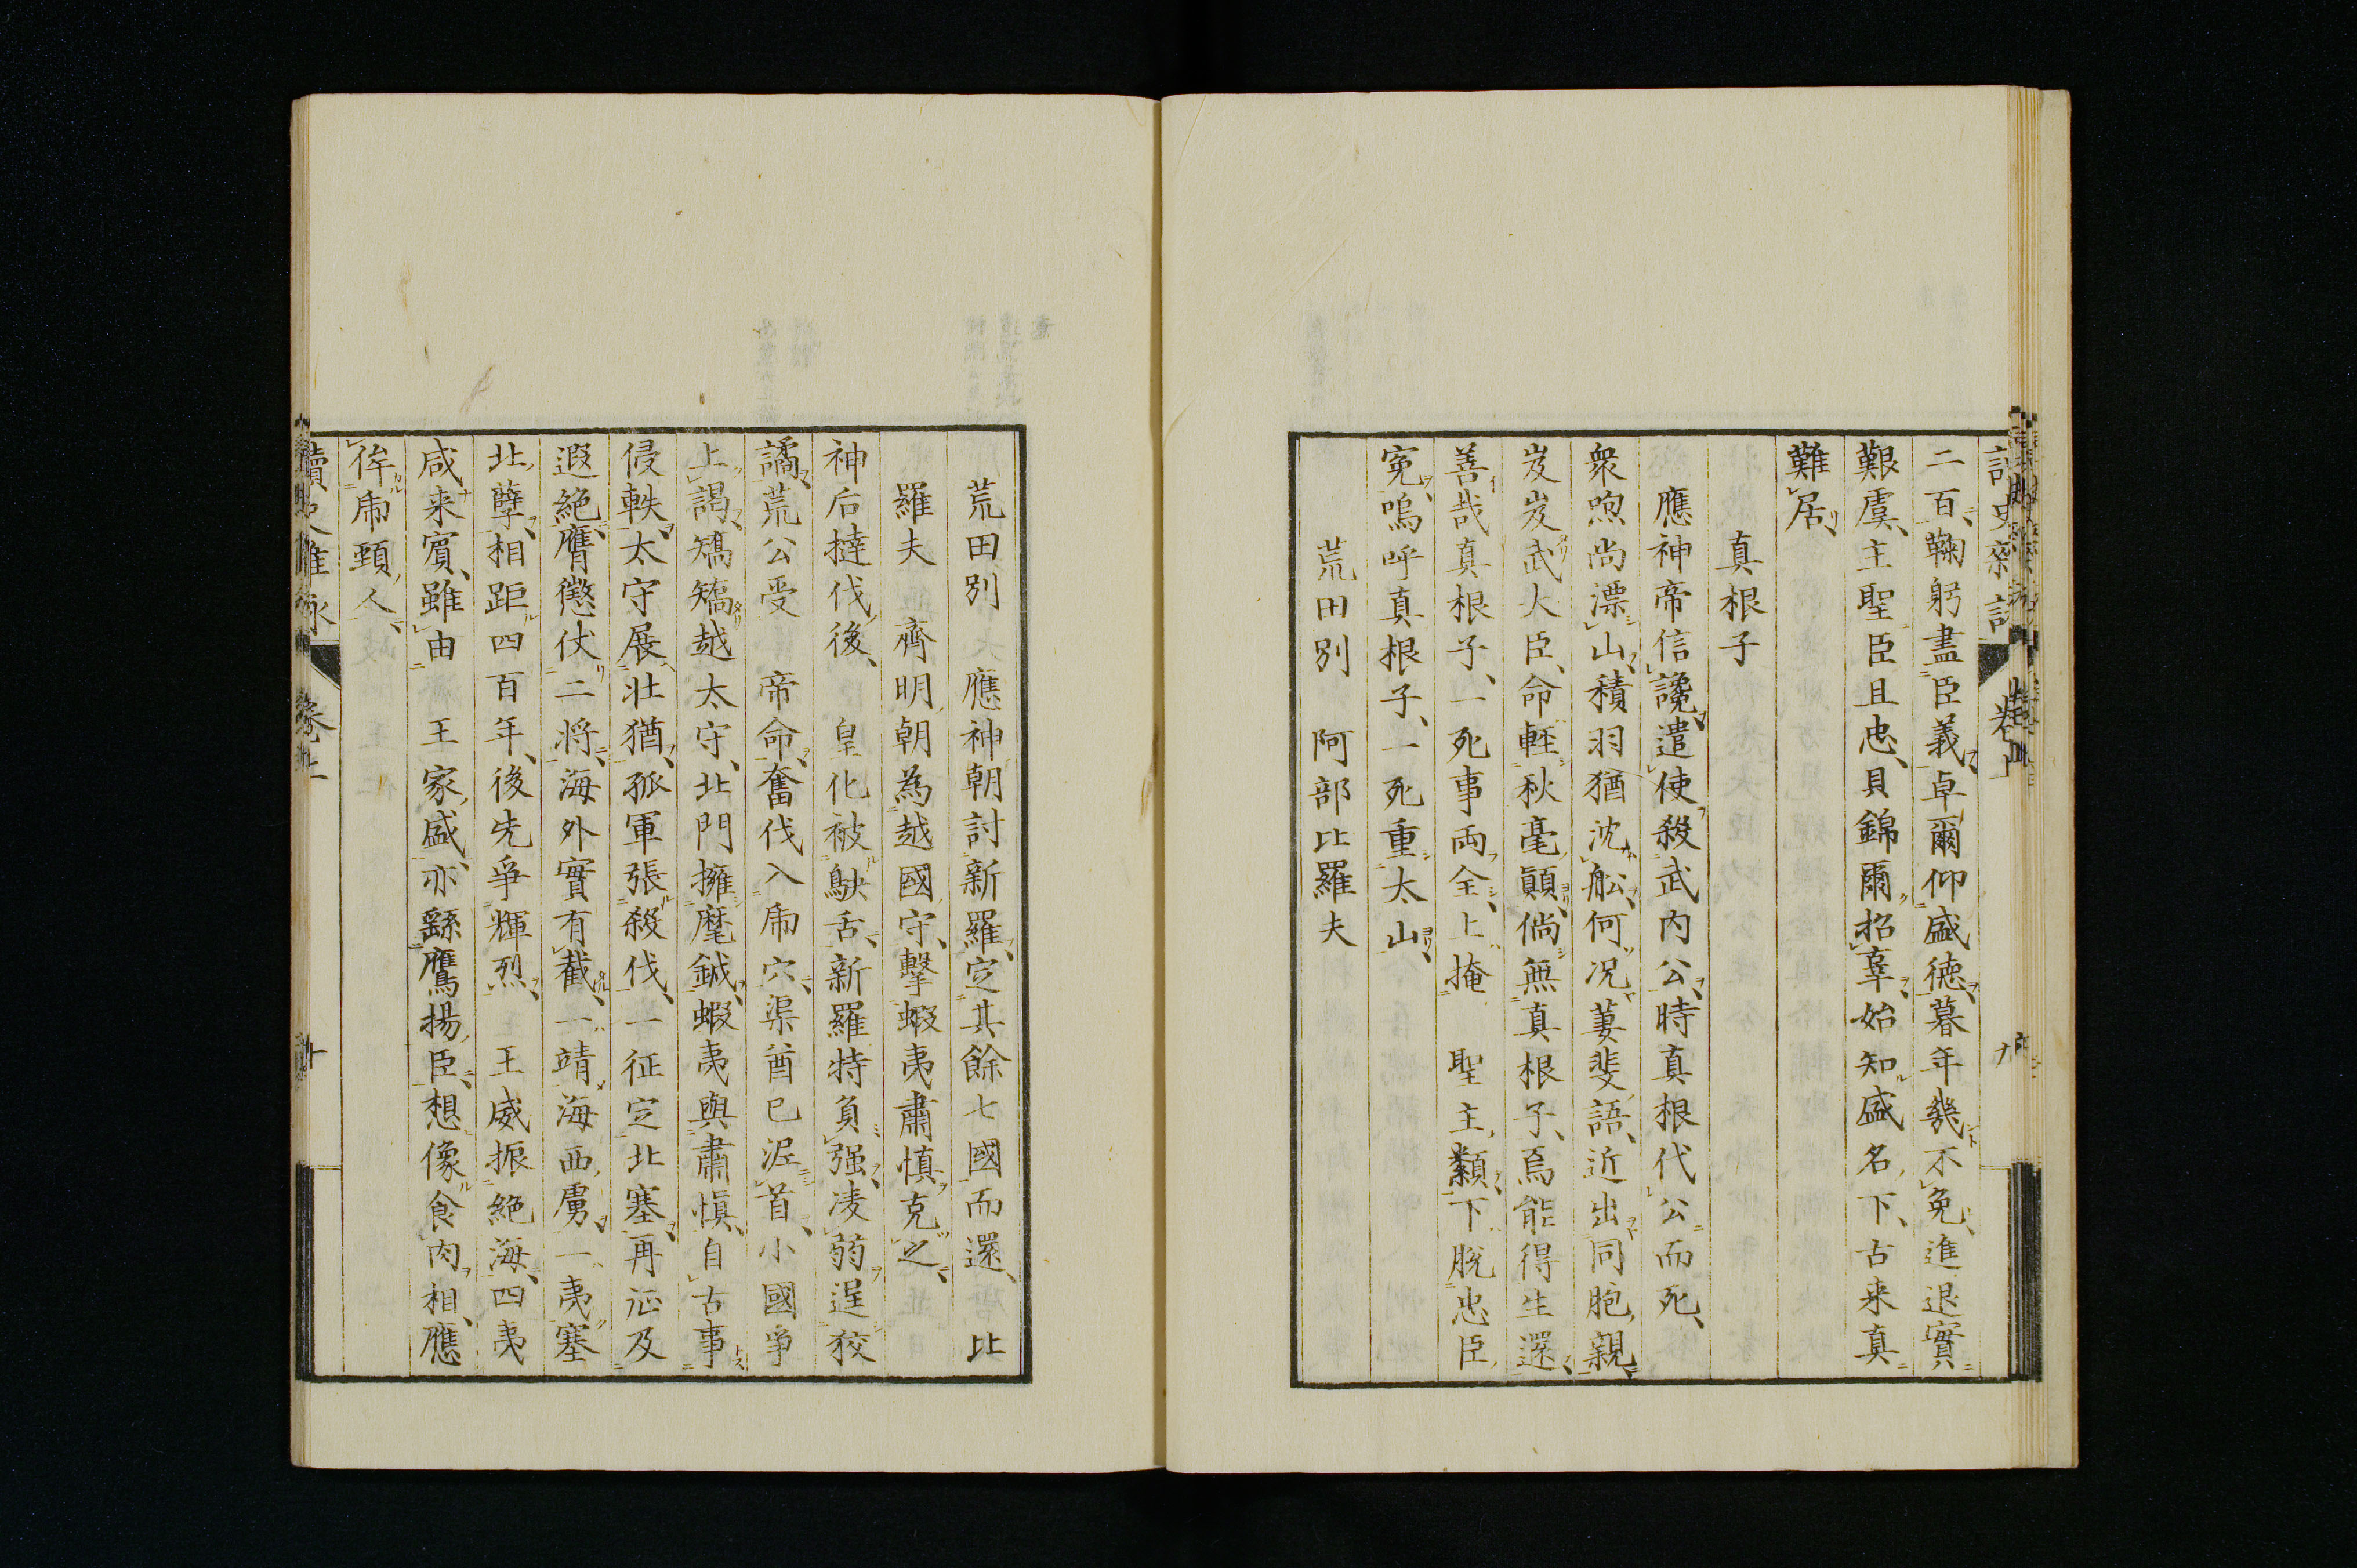 二百、鞠躬盡臣義、卓爾仰盛徳、暮年幾不免、進退實
艱虞、主聖臣且忠、貝錦爾招辜、始知盛名下、古来真
難居、
真根子
應神帝信讒遣使殺武内公、時真根代公而死、
衆喣尚漂山、積羽猶沈舩、何况萋斐語、近出同胞親、
岌岌武大臣、命軽秋毫顚、倘無真根子、焉能得生還、
善哉真根子、一死事両全、上掩 聖主纇、下脱忠臣
寃、嗚呼真根子、一死重太山、
荒田別 阿部比羅夫
荒田別 應神朝討新羅、定其餘七國而還、比
羅夫 齊明朝為越國守、撃蝦夷肅慎克之、
神后撻伐後、 皇化被鴃舌、新羅特負强、凌弱逞狡
譎、荒公受 帝命、奮伐入乕穴、渠酋已泥首、小國爭
上謁、矯矯越太守、北門擁麾鉞、蝦夷與肅愼、自古事
侵軼、太守展壮猶、孤軍張殺伐、一征定北塞、再征及
遐絶、膺懲伏二将、海外實有截、一靖海西虜、一夷塞
北孽、相距四百年、後先爭輝烈、 王威振絶海、四夷
咸来賓、雖由 王家盛、亦繇鷹揚臣、想像食肉相、應
侔乕頸人、
讀史雜詠 卷上 十